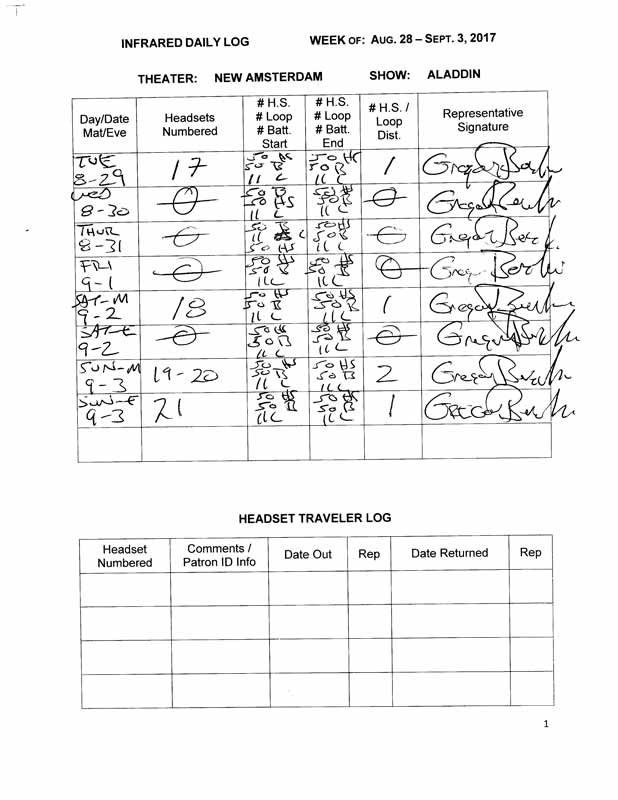 INFRARED DAILY LOG WEEK OF: AUG. 28 – SEPT. 3, 2017
THEATER: NEW AMSTERDAM SHOW: ALADDIN
Day/Date Mat/Eve Headsets Numbered # H.S. # Loop # Batt. Start # H.S. # Loop # Batt. End # H.S. / Loop Dist. Representative Signature
TUE 8-29 17 50 HS 50 B 11 C 50 HS 50 B 11 C 1
WED 8-30 0 50 B 50 HS 11 C 50 HS 50 B 11 C 0
THUR 8-31 0 50 B 11 C 50 HS 50 HS 50 B 11 C 0
FRI 9-1 0 50 HS 50 B 11 C 50 HS 50 B 11 C 0
SAT-M 9-2 18 50 HS 50 B 11 C 50 HS 50 B 11 C 1
SAT-E 9-2 0 50 HS 50 B 11 C 50 HS 50 B 11 C 0
SUN-M 9-3 19-20 50 HS 50 B 11 C 50 HS 50 B 11 C 2
SUN-E 9-3 21 50 HS 50 B 11 C 50 HS 50 B 11 C 1
HEADSET TRAVELER LOG
Headset Numbered Comments / Patron ID Info Date Out Rep Date Returned Rep
1